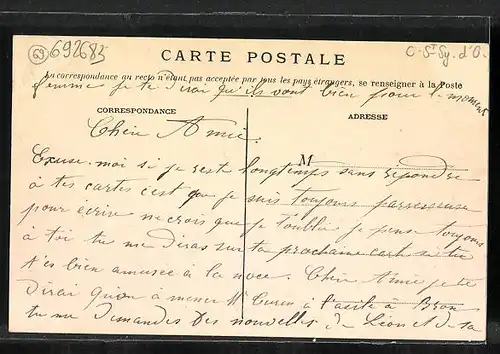 69 692683
C-St Sy. d'O-
CARTE POSTALE
La correspondance au recto n'étant pas acceptée par tous les pays étrangers, se renseigner à la Poste
femme je te dirai qu'ils vont bien pour le moment
CORRESPONDANCE
ADRESSE
Chère Amie.
M
Excuse-moi si je reste longtemps sans repondre
à tes cartes c'est que je suis toujours parresseuse
pour écrire ne crois que je t'oublie je pense toujours
à toi tu me diras sur ta prochaine carte si tu
t'es bien amusée a la noce. Chère Amie je te
dirai qu'on à mener Mr à l'asile à Bron
tu me demandes des nouvelles de Léon et de sa